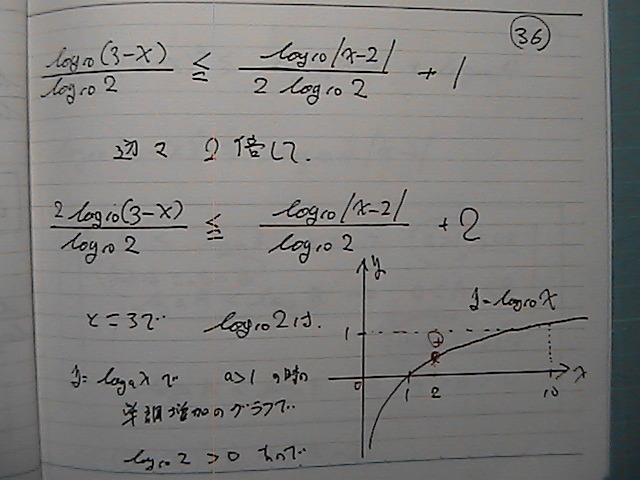 36
log₁₀(3-x)/log₁₀2 ≦ log₁₀|x-2|/2log₁₀2 + 1
辺々 2倍して.
2log₁₀(3-x)/log₁₀2 ≦ log₁₀|x-2|/log₁₀2 + 2
ここで log₁₀2は.
y=logₐx で a>1 の時の
単調増加のグラフで
log₁₀2 > 0 なので
y
y=log₁₀x
1
+
0 1 2 10 x